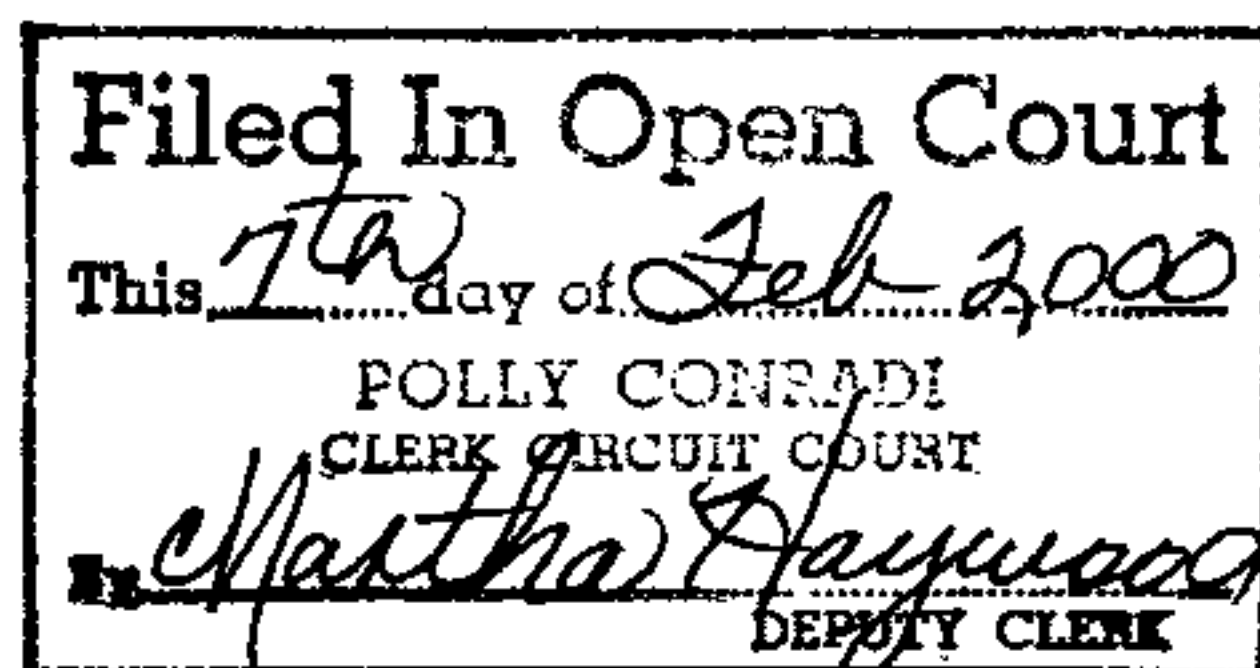 Filed In Open Court
This 7th day of Feb 2,000
POLLY CONRADI
CLERK CIRCUIT COURT
By Martha Haywood
DEPUTY CLERK